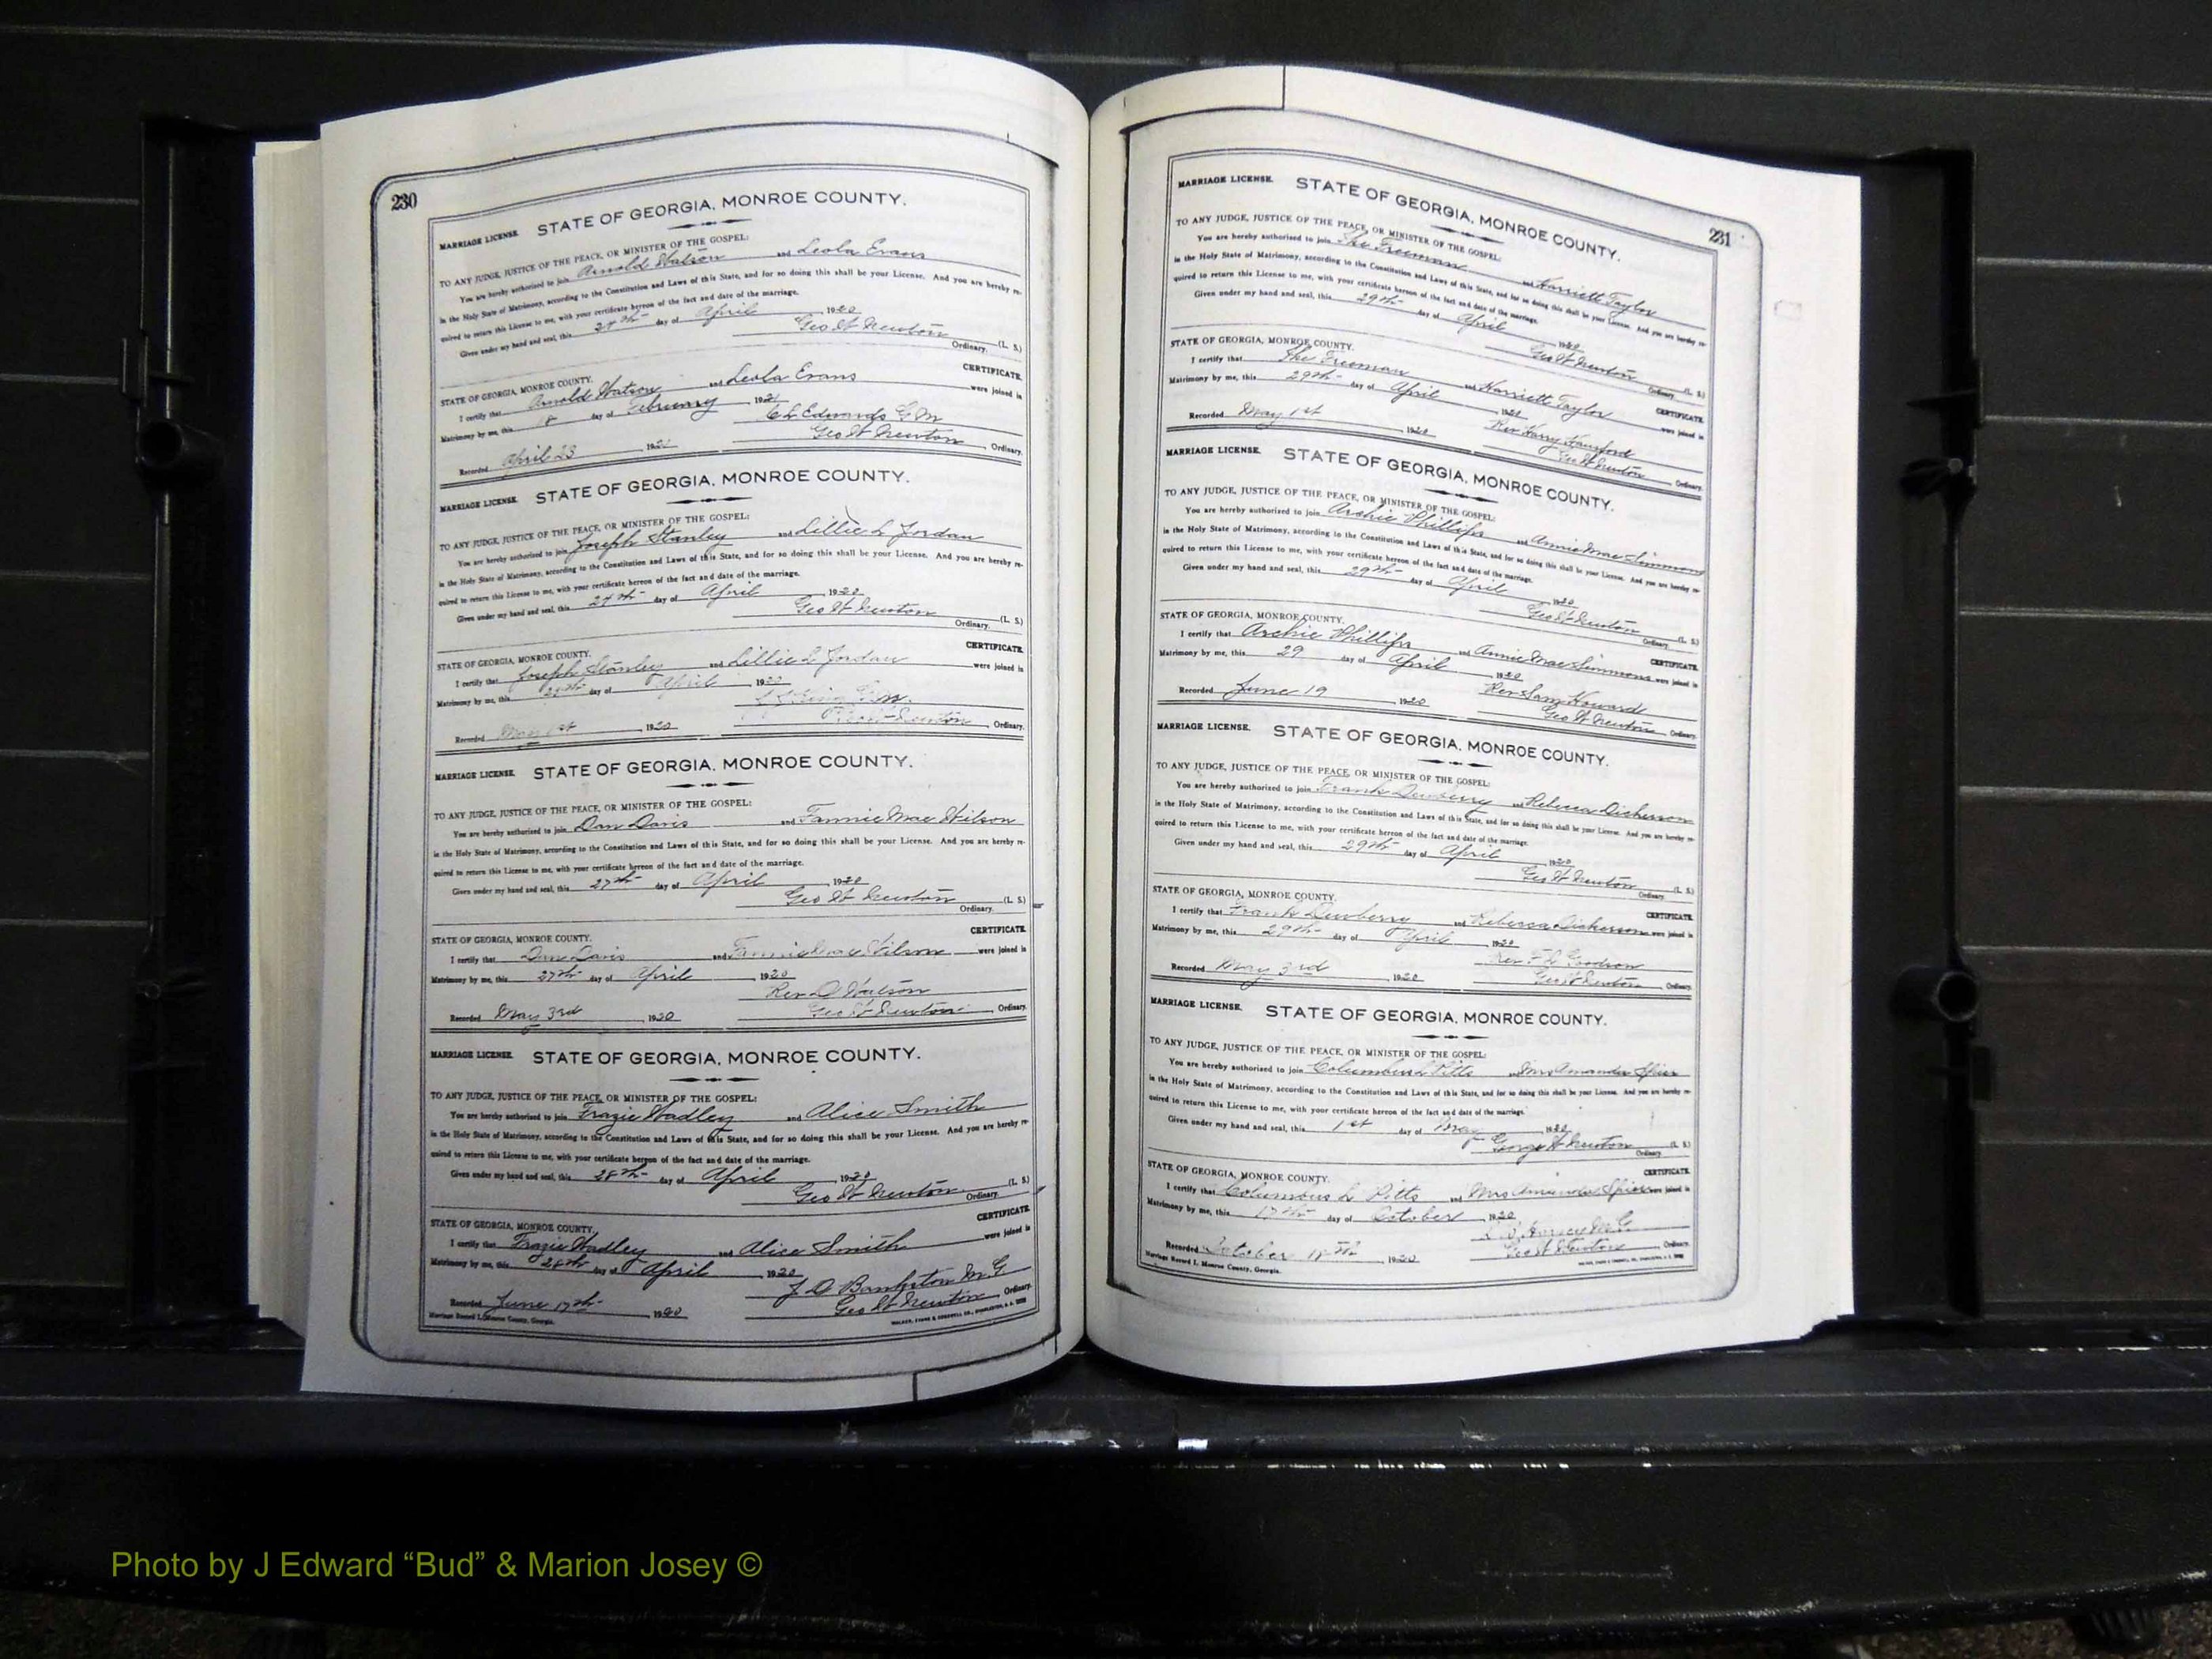 230
MARRIAGE LICENSE. STATE OF GEORGIA, MONROE COUNTY.
TO ANY JUDGE, JUSTICE OF THE PEACE, OR MINISTER OF THE GOSPEL:
You are hereby authorized to join Arnold Watson and Leola Evans
in the Holy State of Matrimony, according to the Constitution and Laws of this State, and for so doing this shall be your License. And you are hereby re-
quired to return this License to me, with your certificate hereon of the fact and date of the marriage.
Given under my hand and seal, this 24th day of April 1920
Geo W Newton (L. S.)
Ordinary.
STATE OF GEORGIA, MONROE COUNTY. CERTIFICATE.
I certify that Arnold Watson and Leola Evans were joined in
Matrimony by me, this 18 day of February 1921
C L Edwards G M
Recorded April 23 1921 Geo W Newton Ordinary.
MARRIAGE LICENSE. STATE OF GEORGIA, MONROE COUNTY.
TO ANY JUDGE, JUSTICE OF THE PEACE, OR MINISTER OF THE GOSPEL:
You are hereby authorized to join Joseph Stanley and Lillie L Jordan
in the Holy State of Matrimony, according to the Constitution and Laws of this State, and for so doing this shall be your License. And you are hereby re-
quired to return this License to me, with your certificate hereon of the fact and date of the marriage.
Given under my hand and seal, this 24th day of April 1920
Geo W Newton (L. S.)
Ordinary.
STATE OF GEORGIA, MONROE COUNTY. CERTIFICATE.
I certify that Joseph Stanley and Lillie L Jordan were joined in
Matrimony by me, this day of April 1920
Recorded May 1st 1920 Newton Ordinary.
MARRIAGE LICENSE. STATE OF GEORGIA, MONROE COUNTY.
TO ANY JUDGE, JUSTICE OF THE PEACE, OR MINISTER OF THE GOSPEL:
You are hereby authorized to join Dan Davis and Fannie Mae Wilson
in the Holy State of Matrimony, according to the Constitution and Laws of this State, and for so doing this shall be your License. And you are hereby re-
quired to return this License to me, with your certificate hereon of the fact and date of the marriage.
Given under my hand and seal, this 27th day of April 1920
Geo W Newton (L. S.)
Ordinary.
STATE OF GEORGIA, MONROE COUNTY. CERTIFICATE.
I certify that Dan Davis and Fannie Mae Wilson were joined in
Matrimony by me, this 27th day of April 1920
Rev D Watson
Recorded May 3rd 1920 Geo W Newton Ordinary.
MARRIAGE LICENSE. STATE OF GEORGIA, MONROE COUNTY.
TO ANY JUDGE, JUSTICE OF THE PEACE, OR MINISTER OF THE GOSPEL:
You are hereby authorized to join Frazie Hadley and Alice Smith
in the Holy State of Matrimony, according to the Constitution and Laws of this State, and for so doing this shall be your License. And you are hereby re-
quired to return this License to me, with your certificate hereon of the fact and date of the marriage.
Given under my hand and seal, this 28th day of April 1920
Geo W Newton (L. S.)
Ordinary.
STATE OF GEORGIA, MONROE COUNTY. CERTIFICATE.
I certify that Frazie Hadley and Alice Smith were joined in
Matrimony by me, this 28th day of April 1920
J O Bankston M G
Recorded June 17th 1920 Geo W Newton Ordinary.
Marriage Record I, Monroe County, Georgia.
231
MARRIAGE LICENSE. STATE OF GEORGIA, MONROE COUNTY.
TO ANY JUDGE, JUSTICE OF THE PEACE, OR MINISTER OF THE GOSPEL:
You are hereby authorized to join Ike Freeman and Harriett Taylor
in the Holy State of Matrimony, according to the Constitution and Laws of this State, and for so doing this shall be your License. And you are hereby re-
quired to return this License to me, with your certificate hereon of the fact and date of the marriage.
Given under my hand and seal, this 29th day of April 1920
Geo W Newton (L. S.)
Ordinary.
STATE OF GEORGIA, MONROE COUNTY. CERTIFICATE.
I certify that Ike Freeman and Harriett Taylor were joined in
Matrimony by me, this 29th day of April 1920
Rev Harry Hansford
Recorded May 1st 1920 Geo W Newton Ordinary.
MARRIAGE LICENSE. STATE OF GEORGIA, MONROE COUNTY.
TO ANY JUDGE, JUSTICE OF THE PEACE, OR MINISTER OF THE GOSPEL:
You are hereby authorized to join Archie Phillips and Annie Mae Simmons
in the Holy State of Matrimony, according to the Constitution and Laws of this State, and for so doing this shall be your License. And you are hereby re-
quired to return this License to me, with your certificate hereon of the fact and date of the marriage.
Given under my hand and seal, this 29th day of April 1920
Geo W Newton (L. S.)
Ordinary.
STATE OF GEORGIA, MONROE COUNTY. CERTIFICATE.
I certify that Archie Phillips and Annie Mae Simmons were joined in
Matrimony by me, this 29 day of April 1920
Rev Sam Howard
Recorded June 19 1920 Geo W Newton Ordinary.
MARRIAGE LICENSE. STATE OF GEORGIA, MONROE COUNTY.
TO ANY JUDGE, JUSTICE OF THE PEACE, OR MINISTER OF THE GOSPEL:
You are hereby authorized to join Frank Dewberry and Rebecca Dickerson
in the Holy State of Matrimony, according to the Constitution and Laws of this State, and for so doing this shall be your License. And you are hereby re-
quired to return this License to me, with your certificate hereon of the fact and date of the marriage.
Given under my hand and seal, this 29th day of April 1920
Geo W Newton (L. S.)
Ordinary.
STATE OF GEORGIA, MONROE COUNTY. CERTIFICATE.
I certify that Frank Dewberry and Rebecca Dickerson were joined in
Matrimony by me, this 29th day of April 1920
Rev F L Goodson
Recorded May 3rd 1920 Geo W Newton Ordinary.
MARRIAGE LICENSE. STATE OF GEORGIA, MONROE COUNTY.
TO ANY JUDGE, JUSTICE OF THE PEACE, OR MINISTER OF THE GOSPEL:
You are hereby authorized to join Columbus L Pitts and Mrs Amanda Spier
in the Holy State of Matrimony, according to the Constitution and Laws of this State, and for so doing this shall be your License. And you are hereby re-
quired to return this License to me, with your certificate hereon of the fact and date of the marriage.
Given under my hand and seal, this 1st day of May 1920
George W Newton (L. S.)
Ordinary.
STATE OF GEORGIA, MONROE COUNTY. CERTIFICATE.
I certify that Columbus L Pitts and Mrs Amanda Spier were joined in
Matrimony by me, this 17th day of October 1920
M. G.
Recorded October 18th 1920 Geo W Newton Ordinary.
Marriage Record I, Monroe County, Georgia.
Photo by J Edward “Bud” & Marion Josey ©